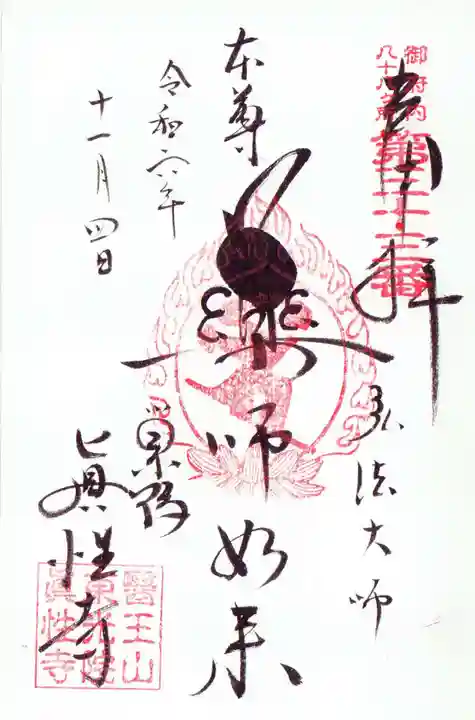 御府内
八十八ヶ所
第三十三番
奉拝
弘法大師
本尊
薬師如来
令和六年
十一月四日
巣鴨
真性寺
醫王山
東光院
眞性寺